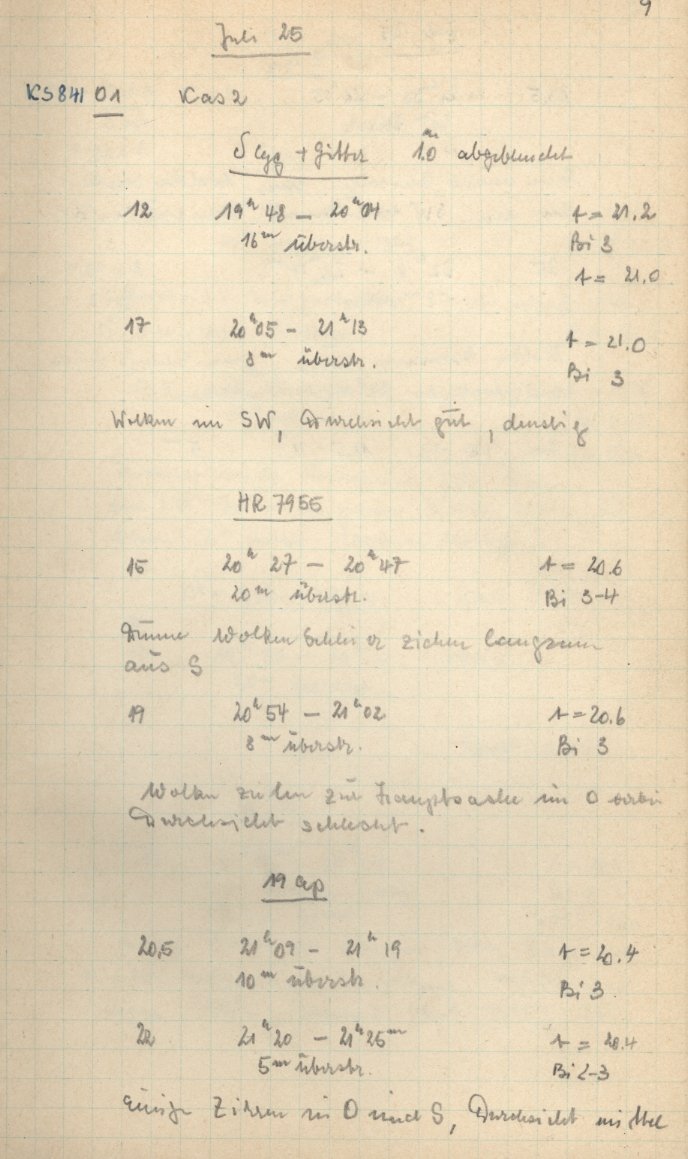 9
Juli 25
KS841 01 Kas2
δ Cyg + Gitter 1.0ᵐ abgeblendet
12 19ʰ 48 – 20ʰ04 t = 21.2
16ᵐ überstr. Bi 3
t = 21.0
17 20ʰ05 – 21ʰ13 t = 21.0
8ᵐ überstr. Bi 3
Wolken im SW, Durchsicht gut, dunstig
HR 7955
15 20ʰ 27 – 20ʰ47 t = 20.6
20ᵐ überstr. Bi 3-4
Dünne Wolkenschleier ziehen langsam
aus S
19 20ʰ54 – 21ʰ02 t = 20.6
8ᵐ überstr. Bi 3
Wolken ziehen zur Hauptsache im O
Durchsicht schlecht.
19 Cep
20,5 21ʰ09 – 21ʰ19 t = 20.4
10ᵐ überstr. Bi 3
22 21ʰ20 – 21ʰ25ᵐ t = 20.4
5ᵐ überstr. Bi 2-3
Einige Zirren in O und S, Durchsicht mittel